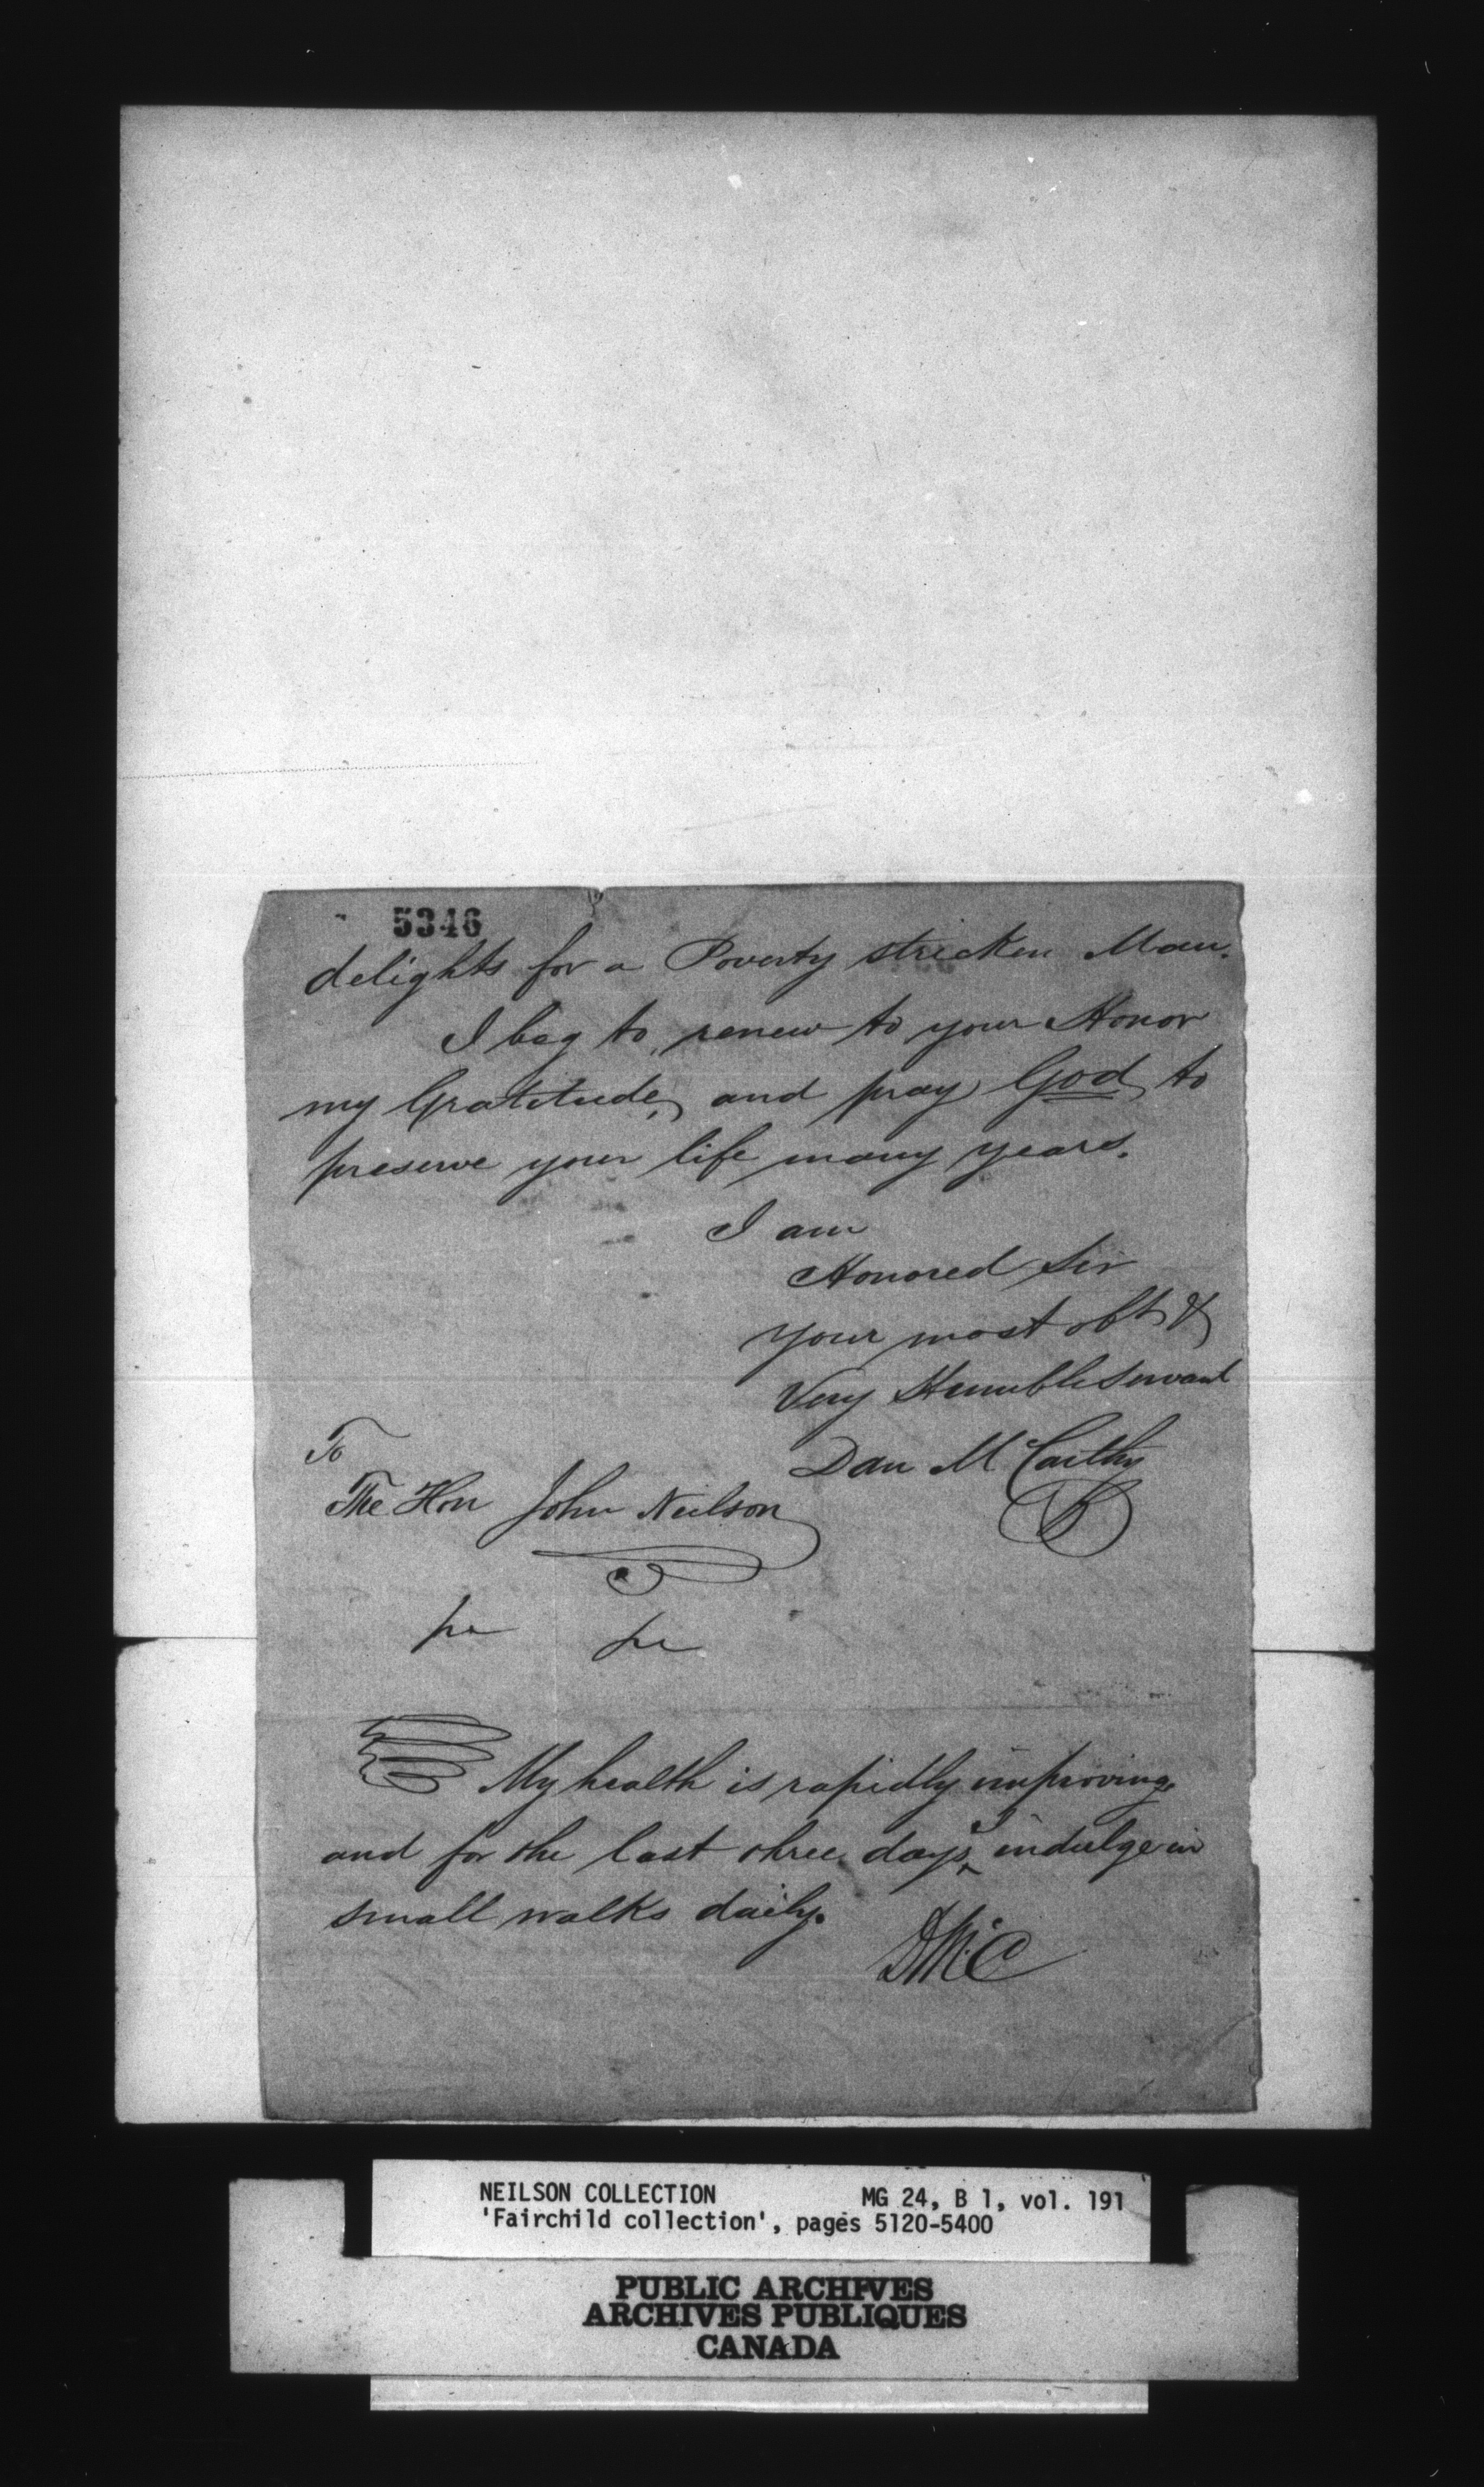 5346
delights for a Poverty stricken Man.
I beg to renew to your Honor
my Gratitude, and pray God to
preserve your life many years.
I am
Honored Sir
your most obt &
Very Humble Servant
Dan McCarthy
To
The Hon John Neilson
My health is rapidly improving,
and for the last three days I indulge in
small walks daily.
DMcC
NEILSON COLLECTION MG 24, B 1, vol. 191
'Fairchild collection', pages 5120-5400
PUBLIC ARCHIVES
ARCHIVES PUBLIQUES
CANADA